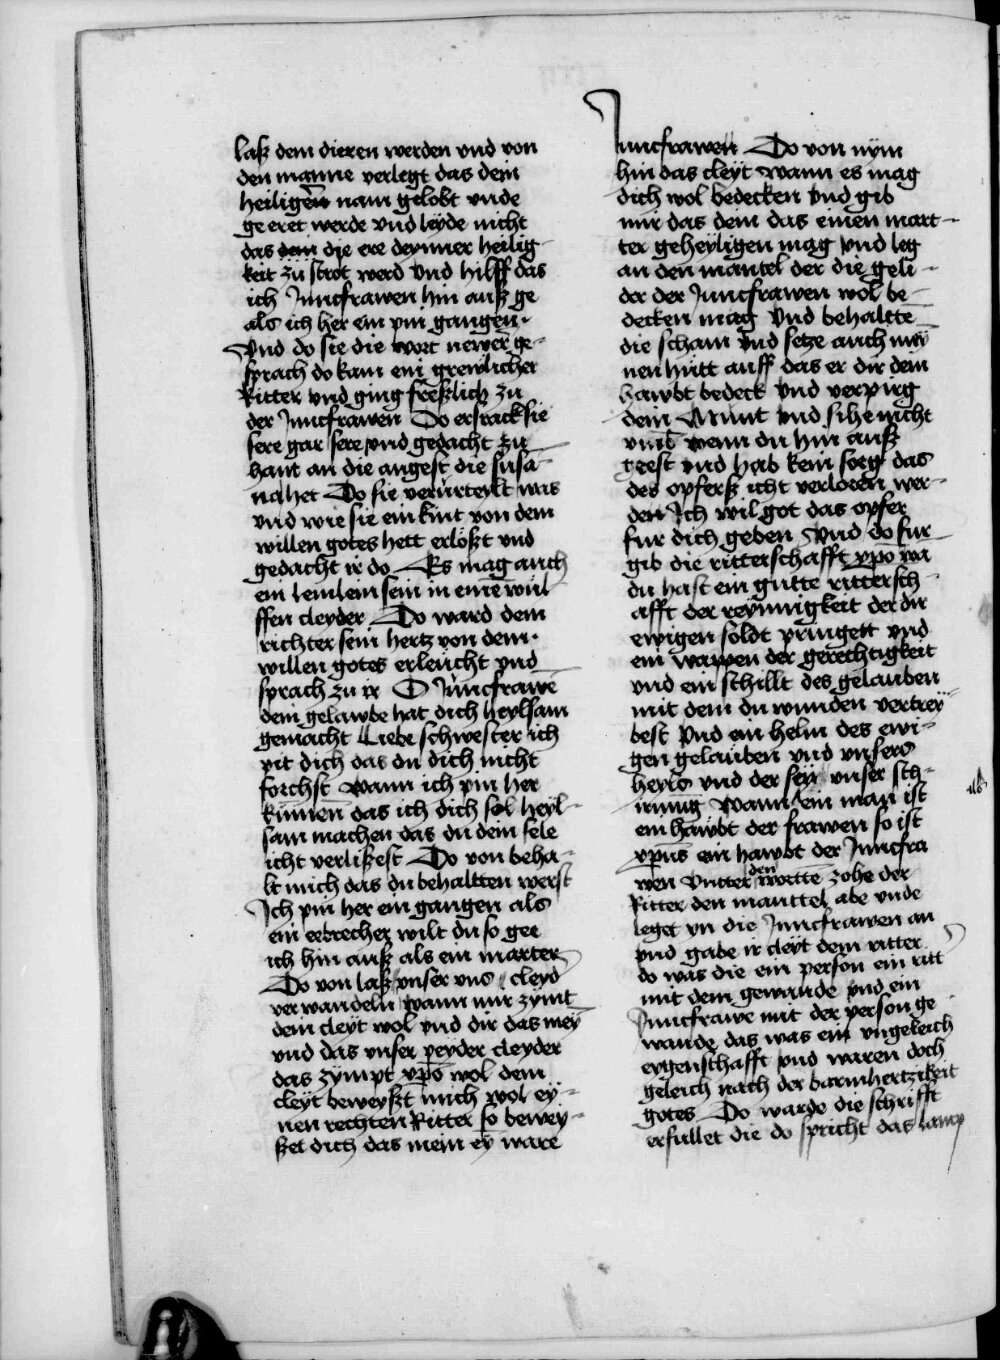 laß dem dieren werden vnd von
den manne verlegt das dein
heiligen nam gelobt vnde
ge eret werde vnd leyde nicht
das dein die ere deynner heilig-
keit zu werd vnd hilff das
ich Junckfrawen hin auß ge
als ich her ein pin gangen.
Vnd do sie die wort newer ge-
sprach do kam ein grewlicher
Ritter vnd ging freßlich zu
der Junckfrawen Do erstrack sie
sere gar sere vnd gedacht zu
hant an die angest die susā-
na het Do sie verurteylt was
vnd wie sie ein kint von dem
willen gotes hett erlößt vnd
gedacht ir do Es mag auch
ein lemlein sein in einē wul-
ffen cleyder Do ward dem
richter sein hertz von dem.
willen gotes erleucht vnd
sprach zu ir O Junckfrawē
dein gelawbe hat dich heylsam
gemacht Liebe schwester ich
pit dich das du dich nicht
forchst wann ich pin her
kummen das ich dich sol heyl-
sam machen das du dein sele
icht verlißest Do von beha-
lt mich das du behaltten werst
Ich pin her ein gangen als
ein eebrecher wilt du so gee
ich hin auß als ein marter
Do von laß vnser vns cleyd
ver wandeln wann mir zymt
dein cleyt wol vnd dir das mey
vnd das vnser peyder cleyder
das zympt xpō wol dein
cleyt beweyßt mich wol ey-
nen rechten Ritter so bewey-
ßet dich das mein ey ware
Junckfrawen Do von nym
hin das cleyt wann es mag
dich wol bedecken vnd gib
mir das dein das einen mart-
ter geheyligen mag vnd leg
an den mantel der die geli-
der der Junckfrawen wol be-
decken mag vnd behaltte
die scham vnd setze auch mey
nen hutt auff das er dir dein
hawbt bedeck vnd verpirg
dein Munt vnd sihe nicht
vmb wenn du hin auß
geest vnd hab kein sorg das
des opferß icht verloren wer-
den Ich wil got das opfer
fur dich geben Vnd do fur
gib die ritterschafft xpō wā
du hast ein gutte rittersch-
afft der reynnigkeit der dir
ewigen soldt pringett vnd
ein wappen der gerechtigkeit
vnd ein schillt des gelauben
mit dem du wunden vertrey-
best vnd ein helm des ewi-
gen gelauben vnd vnsers
herrs vnd der sey vnser sch-
irmung Wann ein man ist
ein hawbt der frawen so ist
xpūs ein hawbt der Junckfra
wen Vntter den wortte zohe der
Ritter den manttel abe vnde
leget yn die Junckfrawen an
vnd gabe ir cleyt dem ritter
do was die ein person ein ritt
mit dem gewande vnd ein
Junckfrawe mit der person ge
wande das was ein vngeleich
eygenschafft vnd waren doch
geleich nach der barmhertzikeit
gotes Do warde die schrifft
erfullet die do spricht das lamp